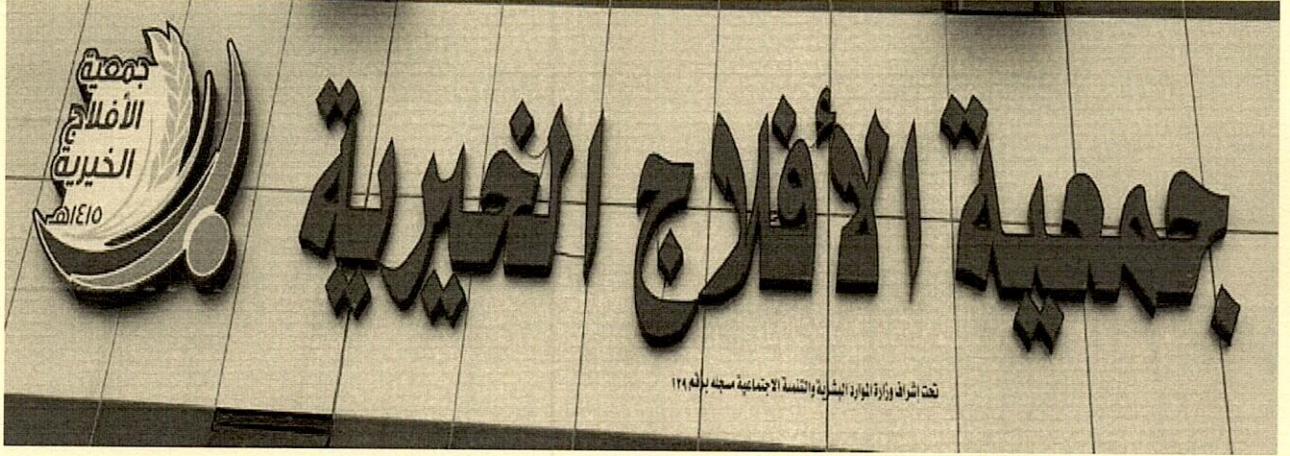 جمعية الأفلاج الخيرية
تحت اشراف وزارة الموارد البشرية والتنمية الاجتماعية مسجله برقم ١٢٩
جمعية
الأفلاج
الخيرية
١٤١٥هـ